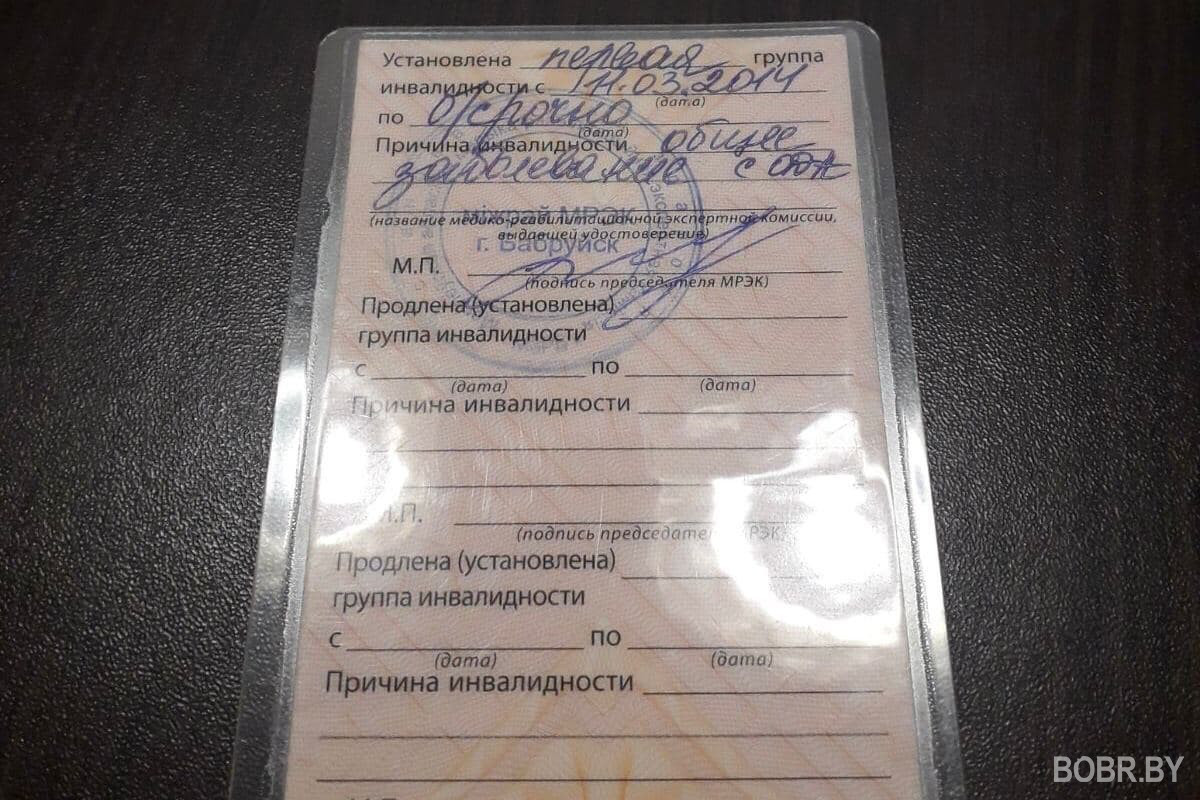 Установлена первая группа
инвалидности с 11.03.2014
(дата)
по б/срочно
(дата)
Причина инвалидности общее
заболевание с
міжрай МРЭК
г. Бабруйск
(название медико-реабилитационной экспертной комиссии,
выдавшей удостоверение)
М.П.
(подпись председателя МРЭК)
Продлена (установлена)
группа инвалидности
с по
(дата) (дата)
Причина инвалидности
М.П.
(подпись председателя МРЭК)
Продлена (установлена)
группа инвалидности
с по
(дата) (дата)
Причина инвалидности
BOBR.BY